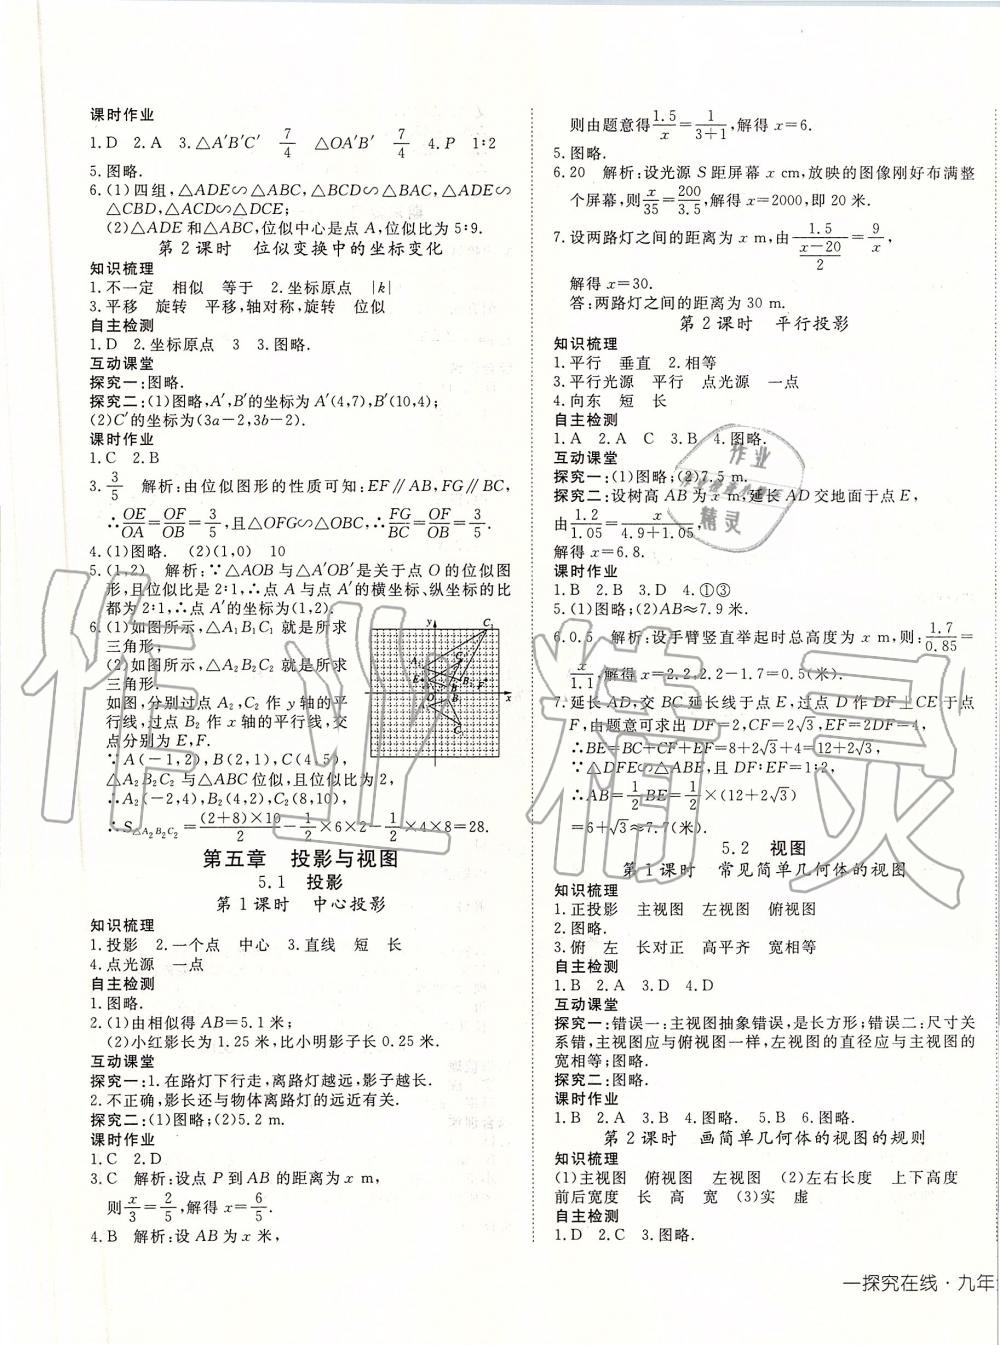 课时作业
1.D 2.A 3.△A′B′C′ 7/4 △OA′B′ 7/4 4.P 1∶2
5.图略.
6.(1)四组,△ADE∽△ABC,△BCD∽△BAC,△ADE∽
△CBD,△ACD∽△DCE;
(2)△ADE和△ABC,位似中心是点A,位似比为5∶9.
第2课时 位似变换中的坐标变化
知识梳理
1.不一定 相似 等于 2.坐标原点 |k|
3.平移 旋转 平移,轴对称,旋转 位似
自主检测
1.D 2.坐标原点 3 3.图略.
互动课堂
探究一:图略.
探究二:(1)图略,A′,B′的坐标为A′(4,7),B′(10,4);
(2)C′的坐标为(3a−2,3b−2).
课时作业
1.C 2.B
3. 3/5 解析:由位似图形的性质可知:EF∥AB,FG∥BC,
∴OE/OA=OF/OB=3/5,且△OFG∽△OBC,∴FG/BC=OF/OB=3/5.
4.(1)图略. (2)(1,0) 10
5.(1,2) 解析:∵△AOB与△A′OB′是关于点O的位似图
形,且位似比是2∶1,∴点A与点A′的横坐标、纵坐标的比
都为2∶1,∴点A′的坐标为(1,2).
6.(1)如图所示,△A₁B₁C₁就是所求
三角形.
(2)如图所示,△A₂B₂C₂就是所求
三角形.
如图,分别过点A₂,C₂作y轴的平
行线,过点B₂作x轴的平行线,交
点分别为E,F.
∵A(−1,2),B(2,1),C(4,5),
△A₂B₂C₂与△ABC位似,且位似比为2,
∴A₂(−2,4),B₂(4,2),C₂(8,10),
∴S△A₂B₂C₂=(2+8)×10/2−1/2×6×2−1/2×4×8=28.
第五章 投影与视图
5.1 投影
第1课时 中心投影
知识梳理
1.投影 2.一个点 中心 3.直线 短 长
4.点光源 一点
自主检测
1.图略.
2.(1)由相似得AB=5.1米;
(2)小红影长为1.25米,比小明影子长0.25米.
互动课堂
探究一:1.在路灯下行走,离路灯越远,影子越长.
2.不正确,影长还与物体离路灯的远近有关.
探究二:(1)图略;(2)5.2 m.
课时作业
1.C 2.D
3.C 解析:设点P到AB的距离为x m,
则x/3=2/5,解得x=6/5.
4.B 解析:设AB为x米,
则由题意得1.5/x=1/(3+1),解得x=6.
5.图略.
6.20 解析:设光源S距屏幕x cm,放映的图像刚好布满整
个屏幕,则x/35=200/3.5,解得x=2000,即20米.
7.设两路灯之间的距离为x m,由1.5/((x−20)/2)=9/x,
解得x=30.
答:两路灯之间的距离为30 m.
第2课时 平行投影
知识梳理
1.平行 垂直 2.相等
3.平行光源 平行 点光源 一点
4.向东 短 长
自主检测
1.A 2.A C 3.B 4.图略.
互动课堂
探究一:(1)图略;(2)7.5 m.
探究二:设树高AB为x m,延长AD交地面于点E,
由1.2/1.05=x/(4.9+1.05),
解得x=6.8.
课时作业
1.B 2.B 3.D 4.①③
5.(1)图略;(2)AB≈7.9米.
6.0.5 解析:设手臂竖直举起时总高度为x m,则:1.7/0.85=
x/1.1,解得x=2.2,2.2−1.7=0.5(米).
7.延长AD,交BC延长线于点E,过点D作DF⊥CE于点
F,由题意可求出DF=2,CF=2√3,EF=2DF=4,
∴BE=BC+CF+EF=8+2√3+4=12+2√3,
∵△DFE∽△ABE,且DF∶EF=1∶2,
∴AB=1/2BE=1/2×(12+2√3)
=6+√3≈7.7(米).
5.2 视图
第1课时 常见简单几何体的视图
知识梳理
1.正投影 主视图 左视图 俯视图
2.图略.
3.俯 左 长对正 高平齐 宽相等
自主检测
1.B 2.A 3.D 4.D
互动课堂
探究一:错误一:主视图抽象错误,是长方形;错误二:尺寸关
系错,主视图应与俯视图一样,左视图的直径应与主视图的
宽相等;图略.
探究二:图略.
课时作业
1.B 2.A 3.B 4.图略. 5.B 6.图略.
第2课时 画简单几何体的视图的规则
知识梳理
(1)主视图 俯视图 左视图 (2)左右长度 上下高度
前后宽度 长 高 宽 (3)实 虚
自主检测
1.D 2.C 3.图略.
一探究在线·九年
作业精灵